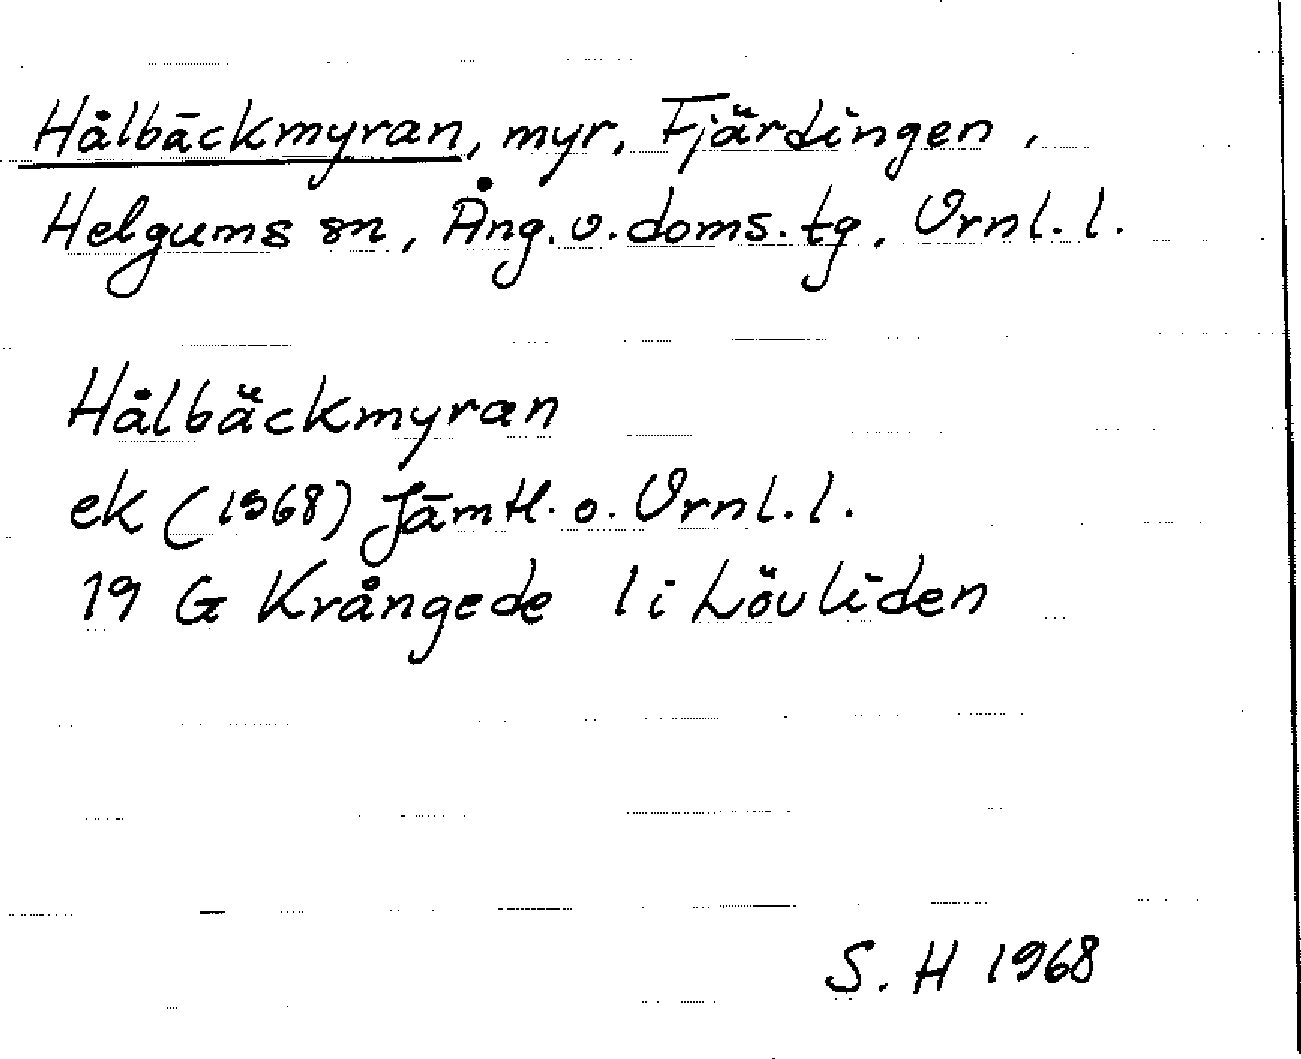 Hålbäckmyran, myr, Fjärdingen,
Helgums sn, Ång. v. doms. tg, Vrnl. l.
Hålbäckmyran
ek (1968) Jämtl. o. Vrnl. l.
19 G Krångede 1 i Lövliden
S. H 1968